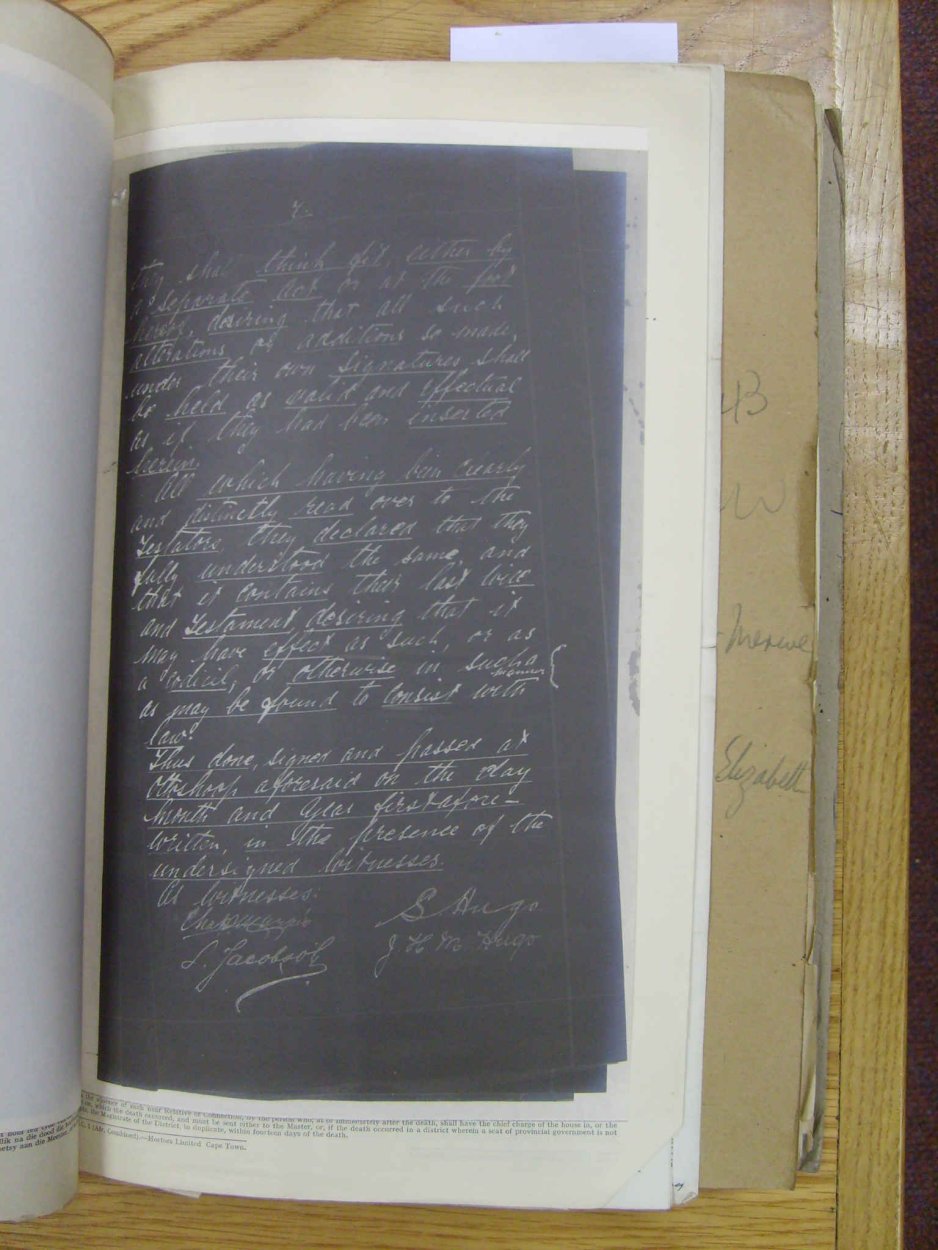 they shall think fit, either by
a separate act or at the foot
hereof, desiring that all such
alterations or additions so made,
under their own signatures shall
be held as valid and effectual
as if they had been inserted
herein.
All which having been clearly
and distinctly read over to the
Testators they declared that they
fully understood the same, and
that it contains their last will
and Testament desiring that it
may have effect as such, or as
a codicil, or otherwise in such a
manner
as may be found to consist with
law.
Thus done, signed and passed at
Ottoshoop aforesaid on the day
month and year first afore-
written, in the presence of the
undersigned witnesses.
As witnesses:
S Hugo
J H M Hugo
S. Jacobsohn
43
W
Merwe
Elizabeth
the absence of such near Relative or Connection, by the person who, at or immediately after the death, shall have the chief charge of the house in, or the
which the death occurred, and must be sent either to the Master, or, if the death occurred in a district wherein a seat of provincial government is not
the Magistrate of the District, in duplicate, within fourteen days of the death.
Hortors Limited Cape Town.